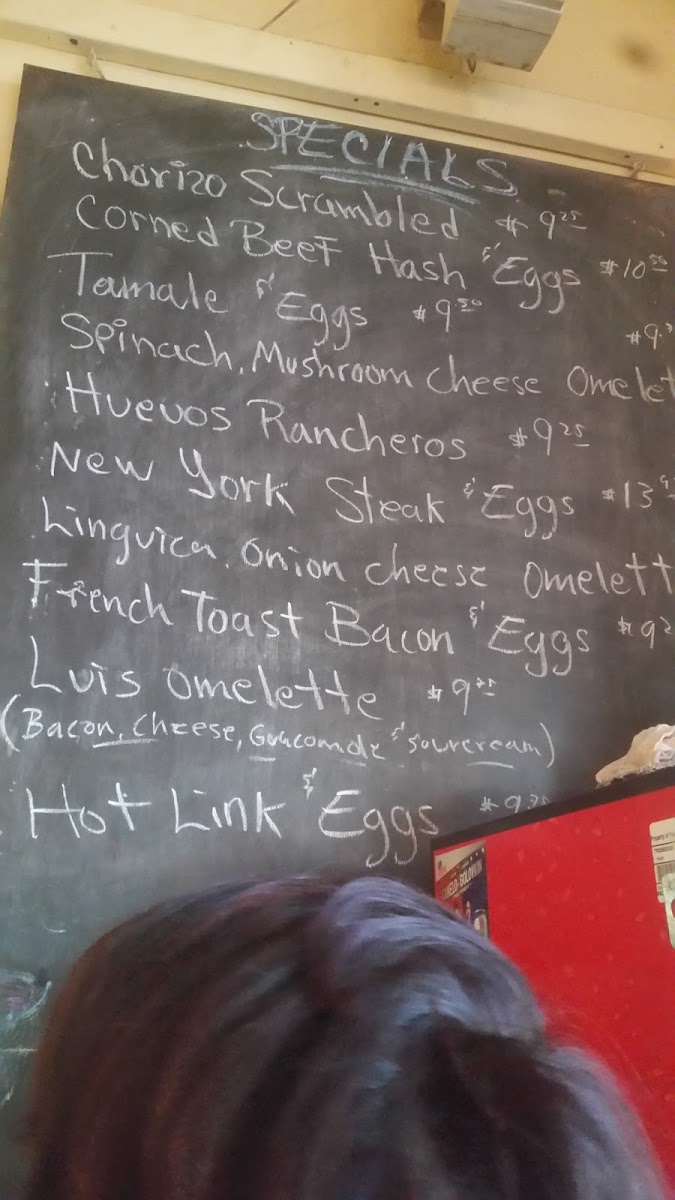 SPECIALS
Chorizo Scrambled $9.25
Corned Beef Hash & Eggs $10.50
Tamale & Eggs $9.50
$9.
Spinach, Mushroom Cheese Omelet
Huevos Rancheros $9.25
New York Steak & Eggs $13
Linguica, Onion Cheese Omelett
French Toast Bacon & Eggs $9.2
Luis Omelette $9.25
(Bacon, Cheese, Guacomole & sourcream)
Hot Link & Eggs $9.25